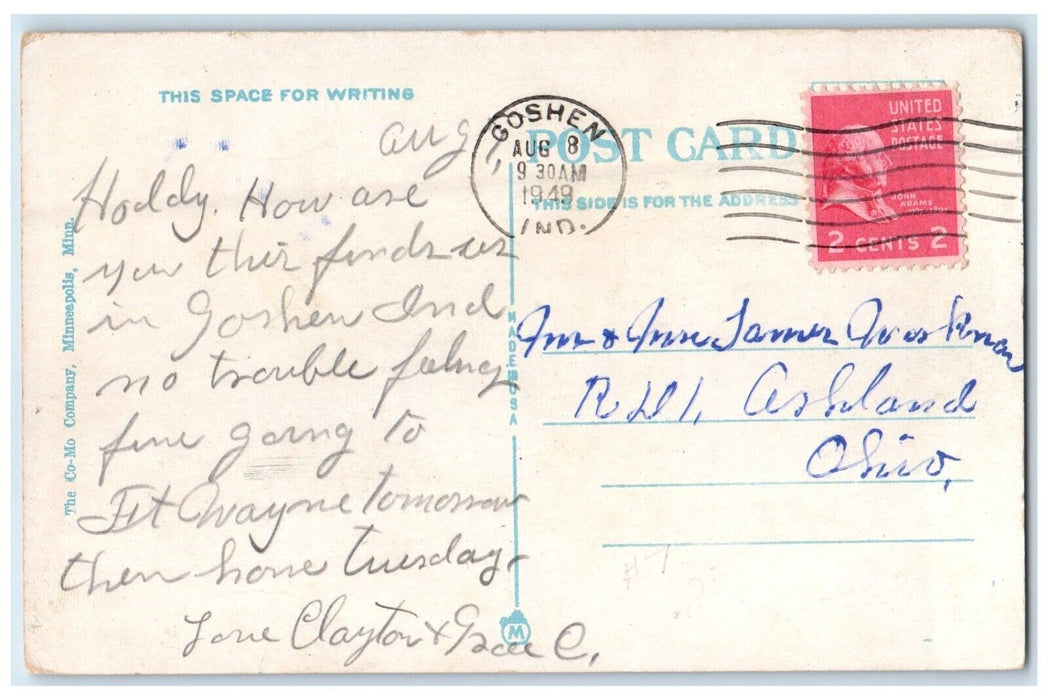 THIS SPACE FOR WRITING
Aug 7,
Hoddy. How are
you this finds us
in Goshen Ind
no trouble feeling
fine going to
Ft Wayne tomorrow
then home tuesday.
Love Clayton & Grace C.
The Co-Mo Company, Minneapolis, Minn.
MADE IN USA
M
POST CARD
THIS SIDE IS FOR THE ADDRESS
GOSHEN
AUG 8
9 30 AM
1949
IND.
UNITED
STATES
POSTAGE
JOHN
ADAMS
2 CENTS 2
Mr & Mrs James Workman
R D 1, Ashland
Ohio,
#7